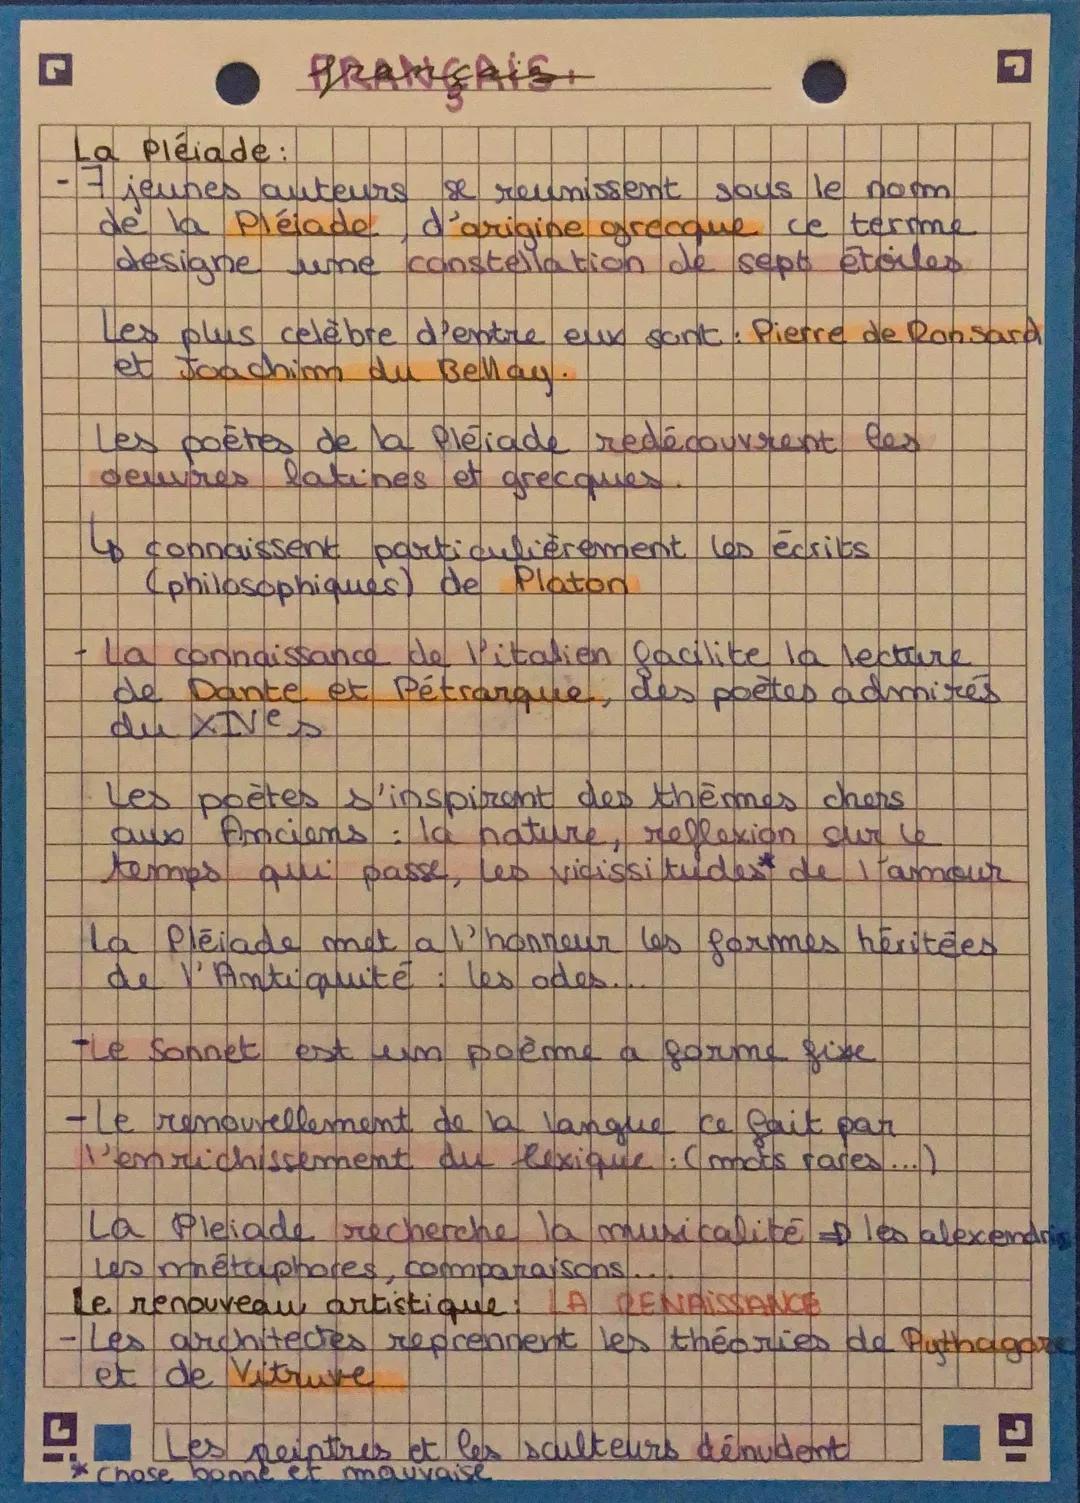 FRANÇAIS.
La Pléiade :
- 7 jeunes auteurs se reunissent sous le nom
de la Pléiade, d'origine grecque ce terme
designe une constellation de sept étoiles
Les plus celèbre d'entre eux sont : Pierre de Ronsard
et Joachim du Bellay.
Les poètes de la Pléiade redécouvrent les
oeuvres latines et grecques.
↳ connaissent particulièrement les écrits
(philosophiques) de Platon
- La connaissance de l'italien facilite la lecture
de Dante et Pétrarque, des poètes admirés
du XIVe s
Les poètes s'inspirent des thèmes chers
aux Anciens : la nature, reflexion sur le
temps qui passe, les vicissitudes* de l'amour
La Pléiade met a l'honneur les formes héritées
de l'Antiquité : les odes...
- Le Sonnet est un poème a forme fixe
- Le renouvellement de la langue ce fait par
l'enrichissement du lexique : (mots rares...)
La Pleiade recherche la musicalité ⇒ les alexendrins
Les métaphores, comparaisons...
Le renouveau artistique : LA RENAISSANCE
- Les architectes reprennent les théories de Pythagore
et de Vitruve
Les peintres et les sculteurs dénudent
* chose bonne et mauvaise